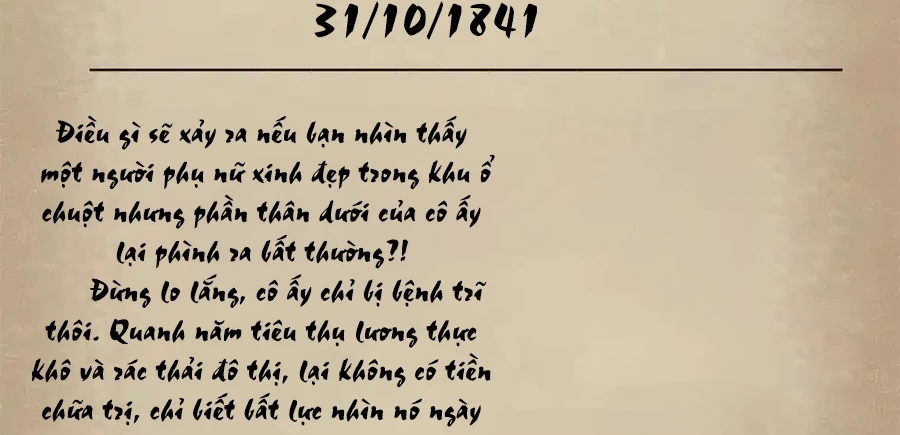 31/10/1841
Điều gì sẽ xảy ra nếu bạn nhìn thấy
một người phụ nữ xinh đẹp trong khu ổ
chuột nhưng phần thân dưới của cô ấy
lại phình ra bất thường?!
Đừng lo lắng, cô ấy chỉ bị bệnh trĩ
thôi. Quanh năm tiêu thụ lương thực
khô và rác thải đô thị, lại không có tiền
chữa trị, chỉ biết bất lực nhìn nó ngày